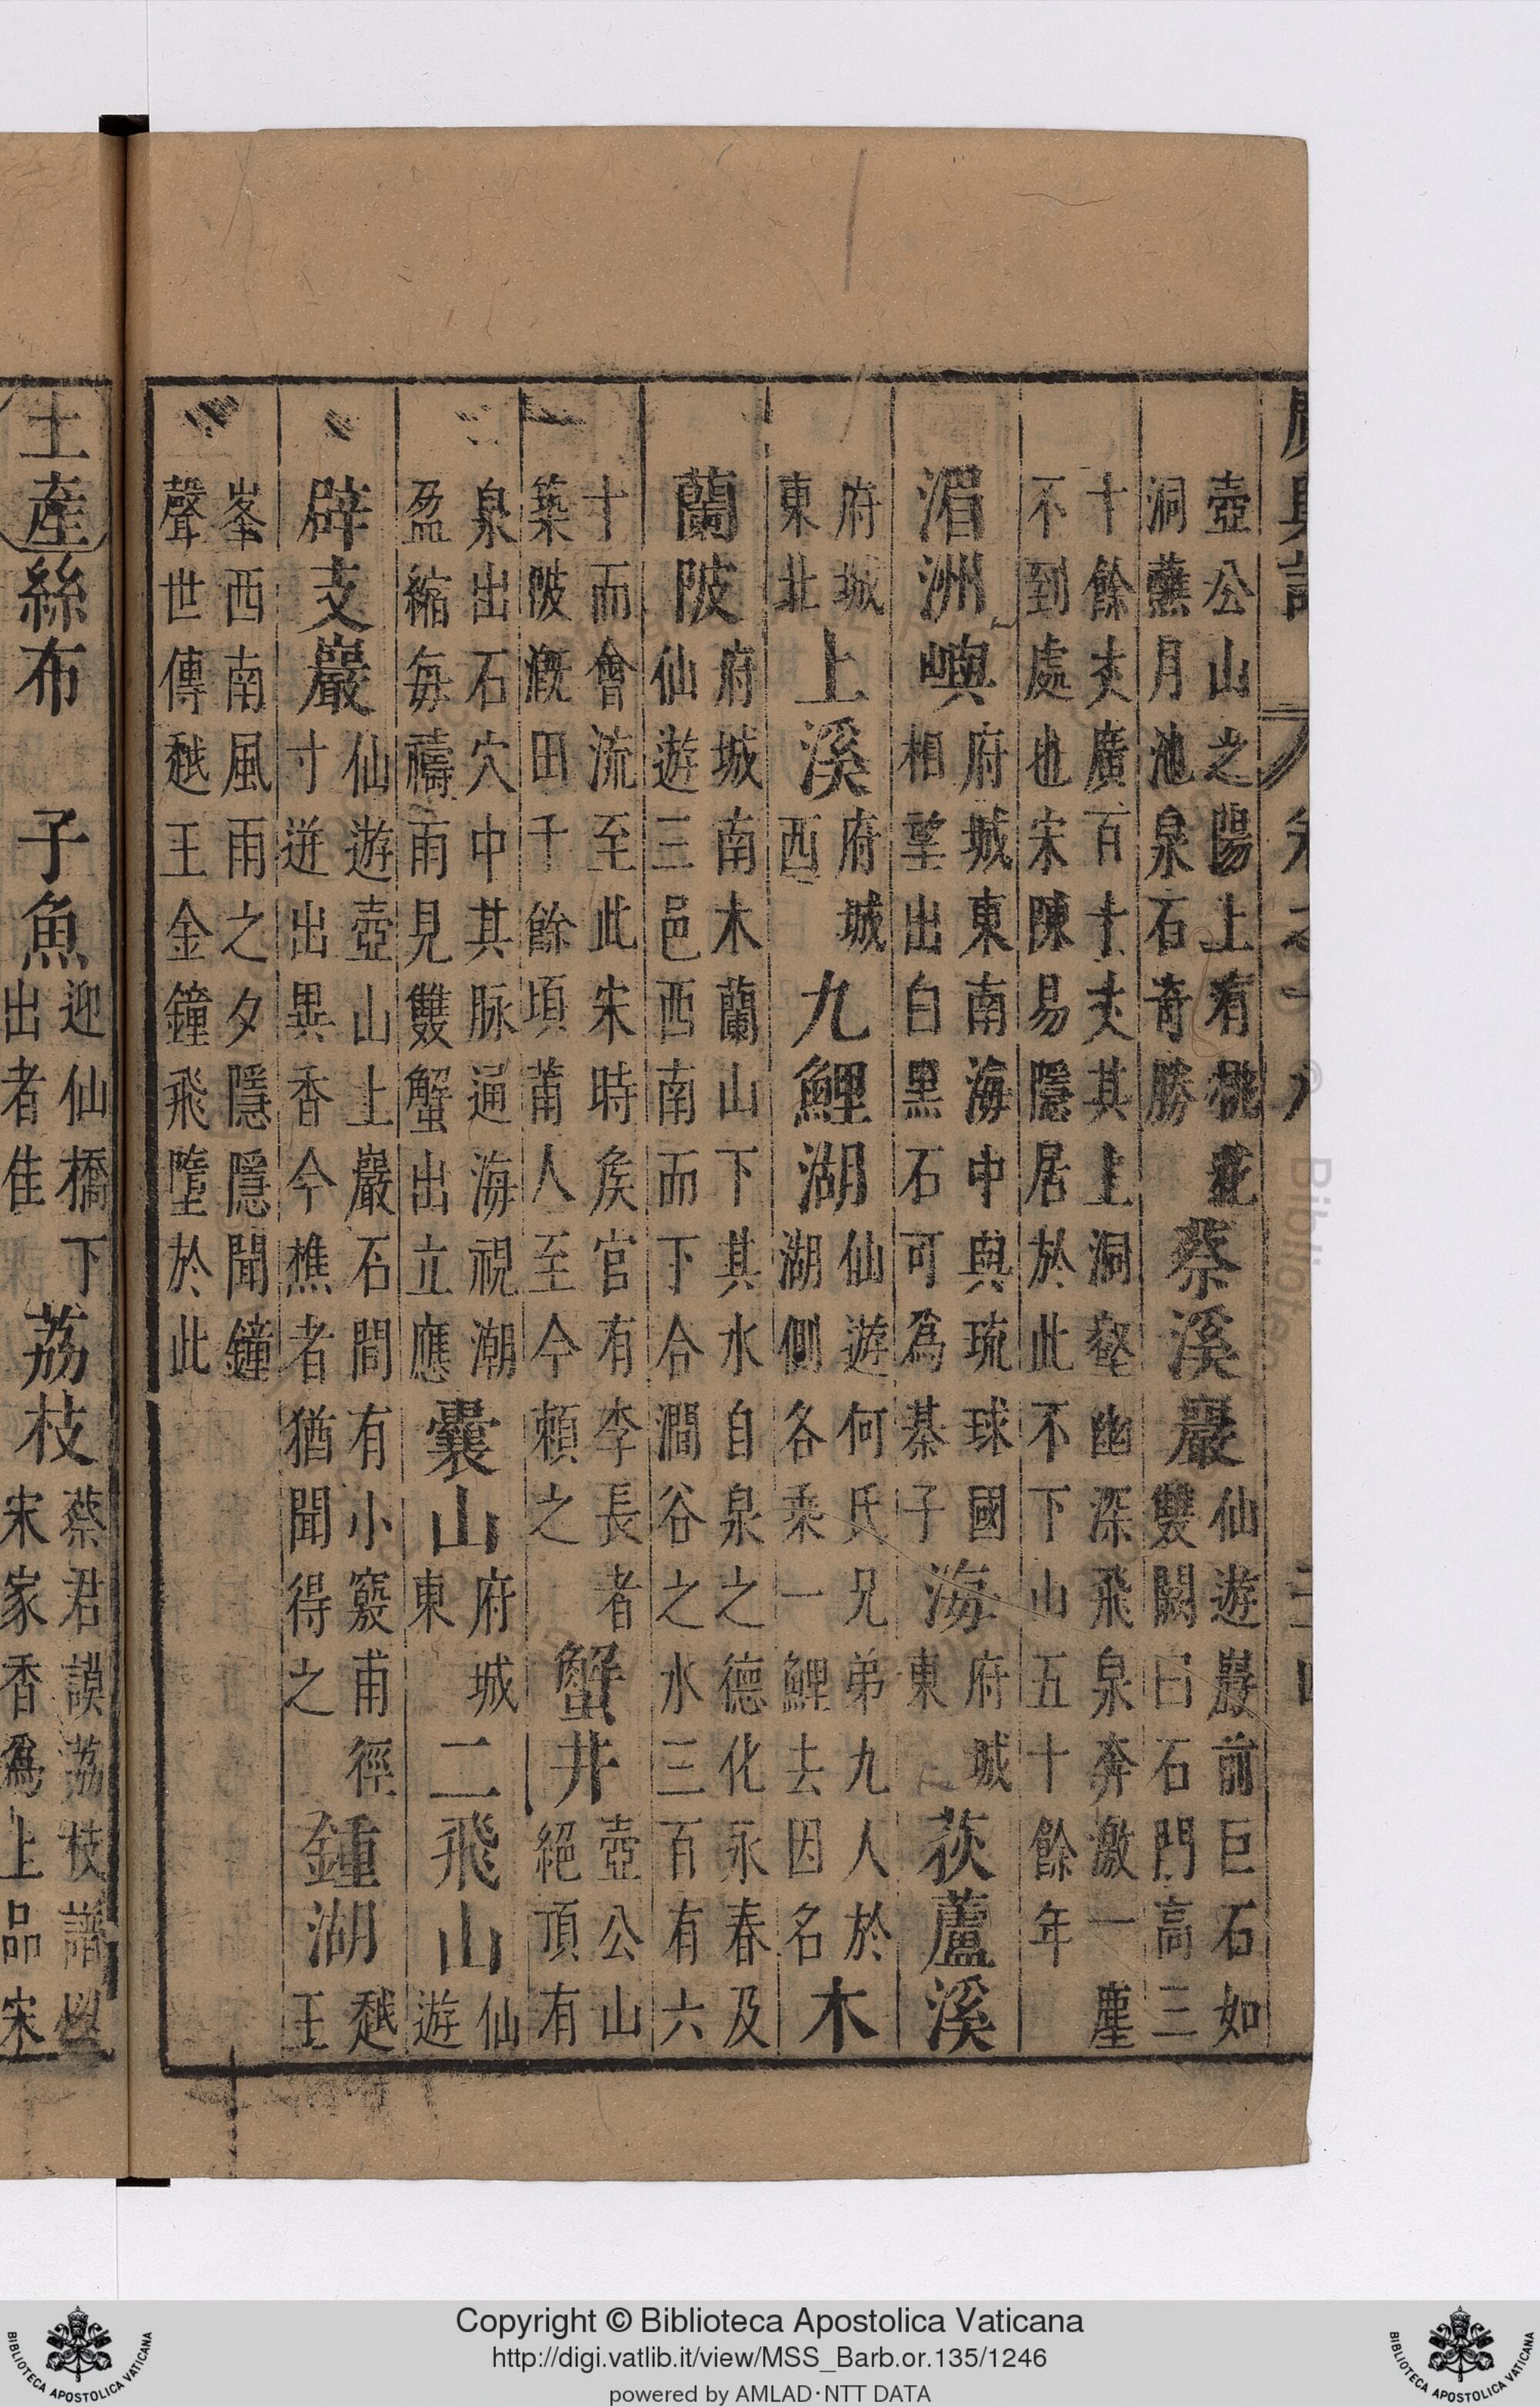 壺公山之陽上有桃花
洞蘸月池泉石奇勝
蔡溪巖
仙遊巖前巨石如
雙闕曰石門高三
十餘丈廣百十丈其上洞壑幽深飛泉奔激一塵
不到處也宋陳易隱居於此不下山五十餘年
湄洲嶼
府城東南海中與琉球國
相望出白黑石可為碁子
海
府城
東
荻蘆溪
府城
東北
上溪
府城
西
九鯉湖
仙遊何氏兄弟九人於
湖側各乘一鯉去因名
木
蘭陂
府城南木蘭山下其水自泉之德化永春及
仙遊三邑西南而下合澗谷之水三百有六
十而會流至此宋時矦官有李長者
築陂溉田千餘頃莆人至今頼之
蟹井
壺公山
絕頂有
泉出石穴中其脉通海視潮
盈縮每禱雨見雙蟹出立應
囊山
府城
東
二飛山
仙
遊
辟支巖
仙遊壺山上巖石間有小竅甫徑
寸迸出異香今樵者猶聞得之
鍾湖
越
王
峯西南風雨之夕隱隱聞鐘
聲世傳越王金鐘飛墮於此
土產
絲布
子魚
迎仙橋下
出者佳
荔枝
蔡君謨荔枝譜以
宋家香爲上品宋
Copyright © Biblioteca Apostolica Vaticana
http://digi.vatlib.it/view/MSS_Barb.or.135/1246
powered by AMLAD·NTT DATA
BIBLIOTECA APOSTOLICA VATICANA
BIBLIOTECA APOSTOLICA VATICANA